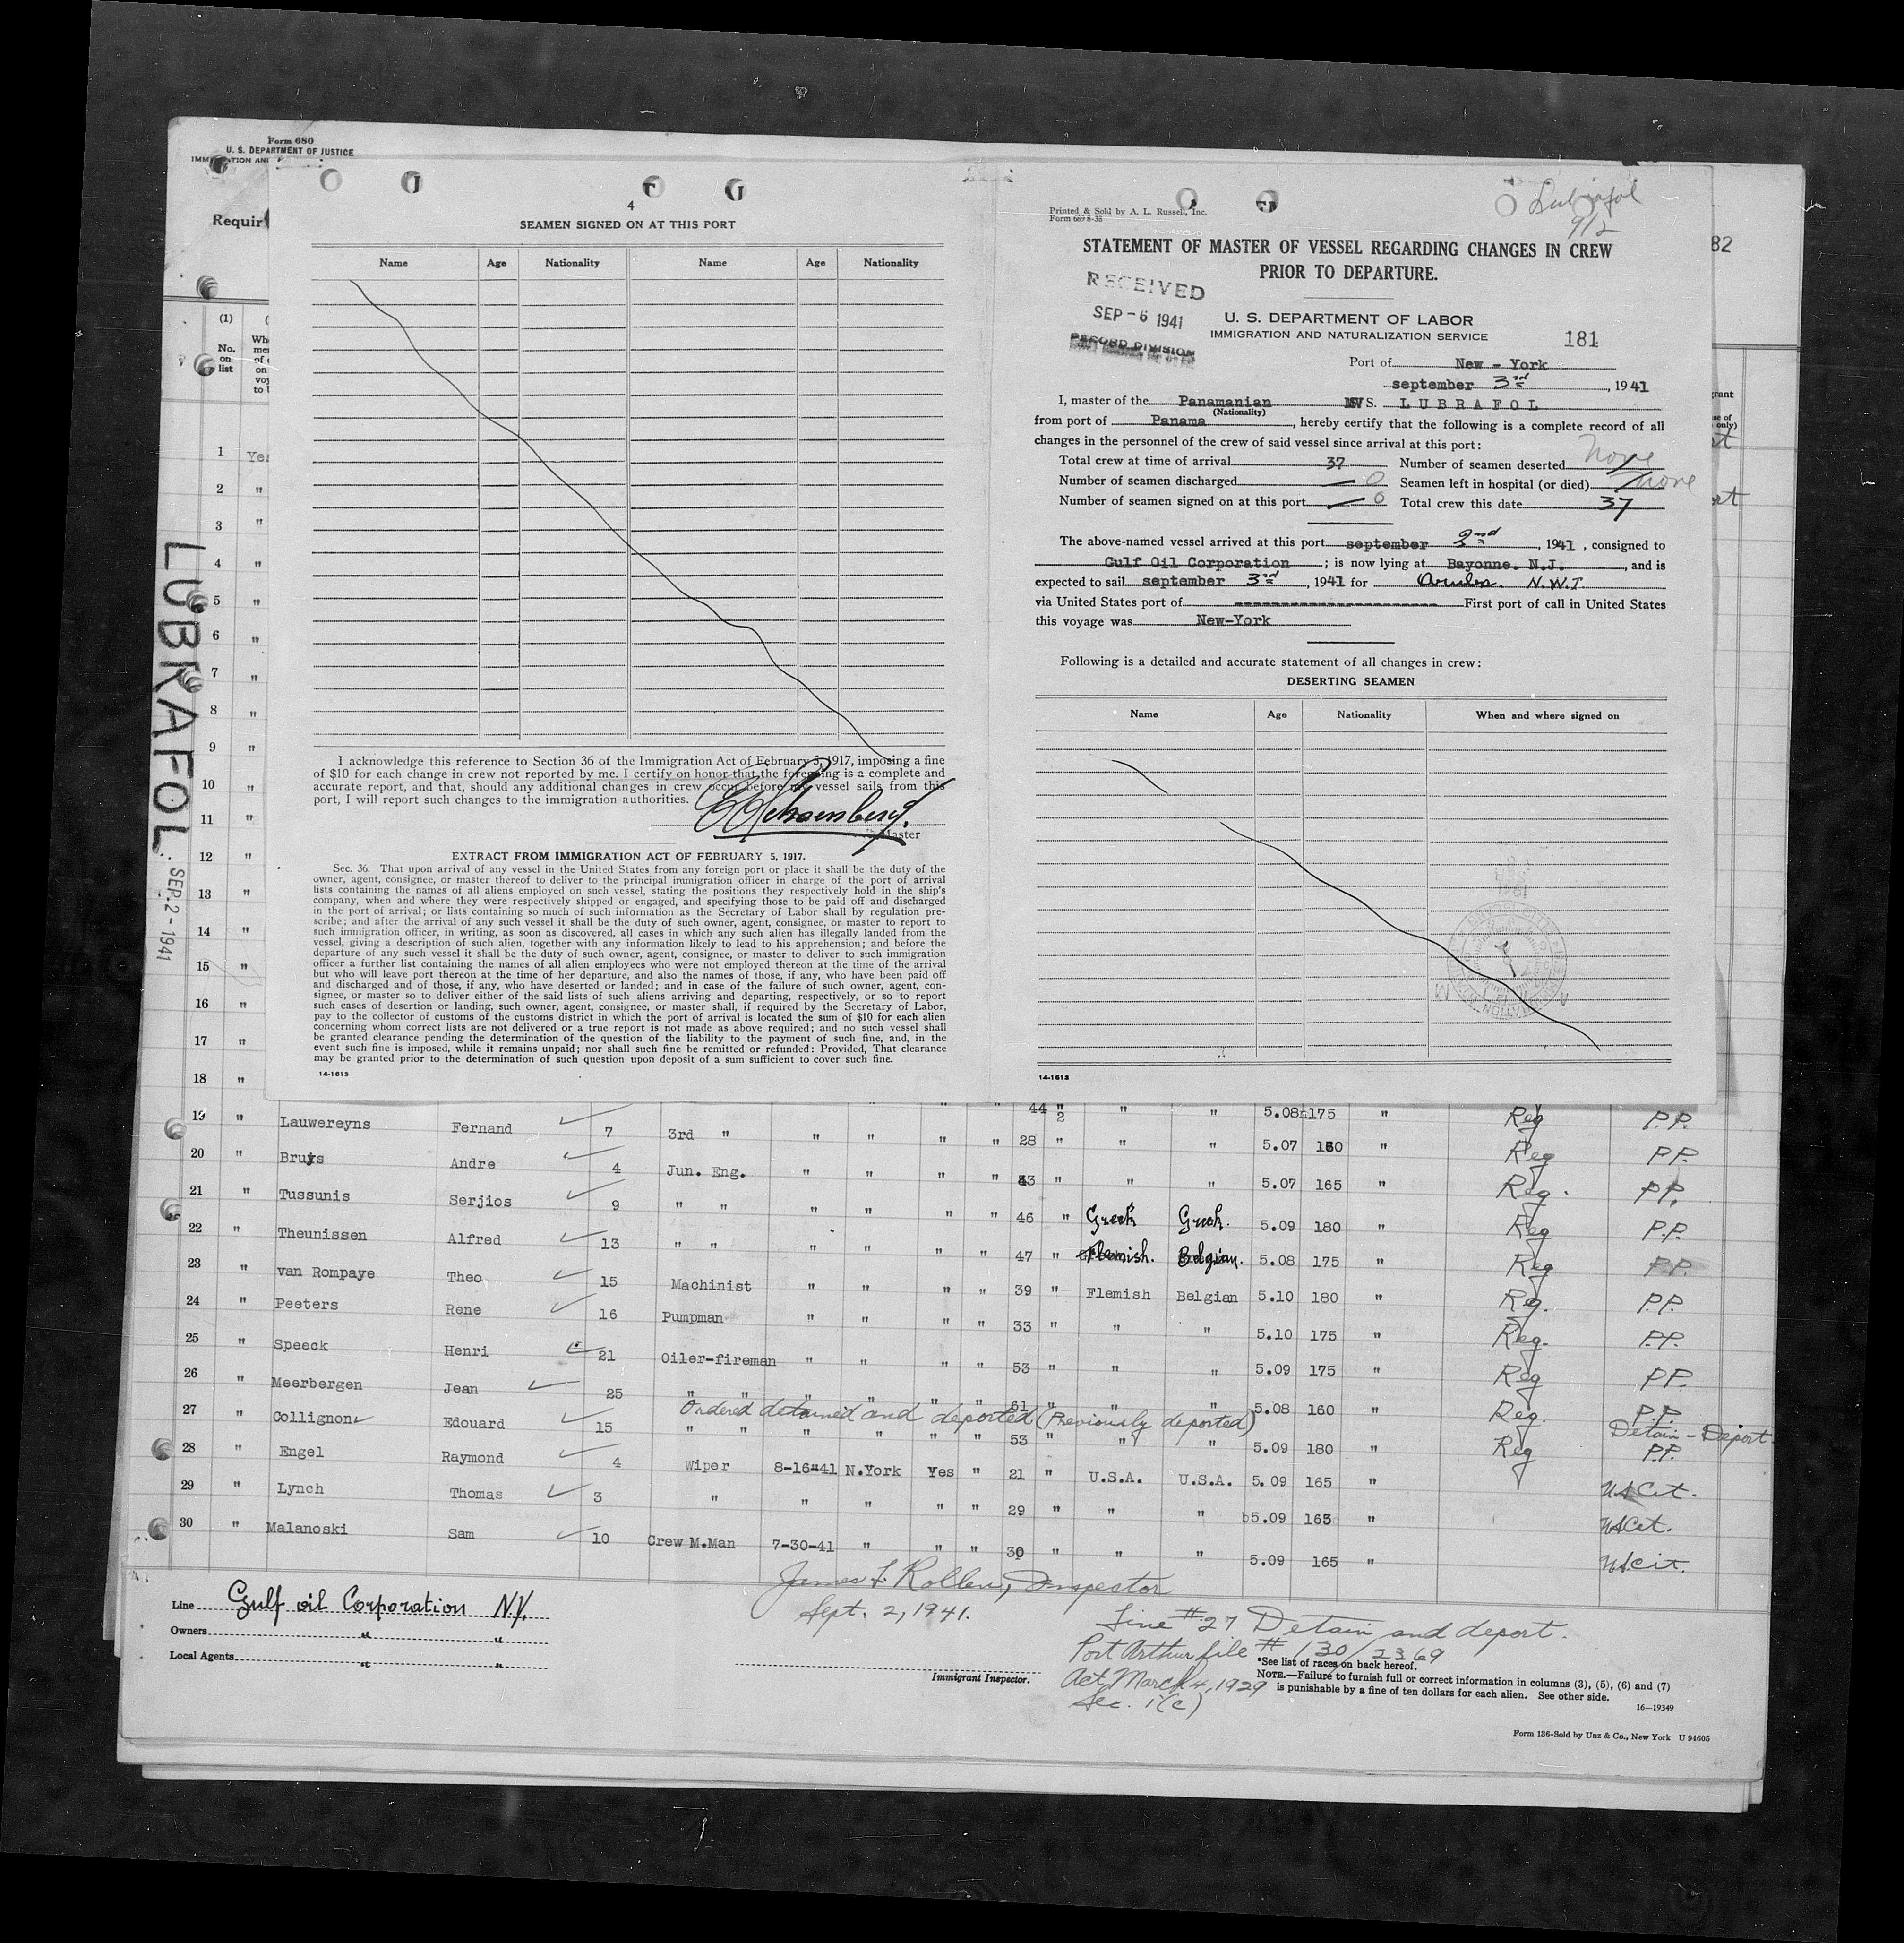 Form 680
U. S. DEPARTMENT OF JUSTICE
Requir
LUBRAFOL SEP. 2 - 1941
4
SEAMEN SIGNED ON AT THIS PORT
Name Age Nationality Name Age Nationality
I acknowledge this reference to Section 36 of the Immigration Act of February 5, 1917, imposing a fine
of $10 for each change in crew not reported by me. I certify on honor that the foregoing is a complete and
accurate report, and that, should any additional changes in crew occur before my vessel sails from this
port, I will report such changes to the immigration authorities.
Master
EXTRACT FROM IMMIGRATION ACT OF FEBRUARY 5, 1917.
Sec. 36. That upon arrival of any vessel in the United States from any foreign port or place it shall be the duty of the
owner, agent, consignee, or master thereof to deliver to the principal immigration officer in charge of the port of arrival
lists containing the names of all aliens employed on such vessel, stating the positions they respectively hold in the ship's
company, when and where they were respectively shipped or engaged, and specifying those to be paid off and discharged
in the port of arrival; or lists containing so much of such information as the Secretary of Labor shall by regulation pre-
scribe; and after the arrival of any such vessel it shall be the duty of such owner, agent, consignee, or master to report to
such immigration officer, in writing, as soon as discovered, all cases in which any such alien has illegally landed from the
vessel, giving a description of such alien, together with any information likely to lead to his apprehension; and before the
departure of any such vessel it shall be the duty of such owner, agent, consignee, or master to deliver to such immigration
officer a further list containing the names of all alien employees who were not employed thereon at the time of the arrival
but who will leave port thereon at the time of her departure, and also the names of those, if any, who have been paid off
and discharged and of those, if any, who have deserted or landed; and in case of the failure of such owner, agent, con-
signee, or master so to deliver either of the said lists of such aliens arriving and departing, respectively, or so to report
such cases of desertion or landing, such owner, agent, consignee, or master shall, if required by the Secretary of Labor,
pay to the collector of customs of the customs district in which the port of arrival is located the sum of $10 for each alien
concerning whom correct lists are not delivered or a true report is not made as above required; and no such vessel shall
be granted clearance pending the determination of the question of the liability to the payment of such fine, and, in the
event such fine is imposed, while it remains unpaid; nor shall such fine be remitted or refunded: Provided, That clearance
may be granted prior to the determination of such question upon deposit of a sum sufficient to cover such fine.
14-1613
Printed & Sold by A. L. Russell, Inc.
Lubrafol
9/2
STATEMENT OF MASTER OF VESSEL REGARDING CHANGES IN CREW
PRIOR TO DEPARTURE.
RECEIVED
SEP - 6 1941
RECORD DIVISION
U. S. DEPARTMENT OF LABOR
IMMIGRATION AND NATURALIZATION SERVICE 181
Port of New - York
september 3rd, 1941
I, master of the Panamanian S. LUBRAFOL
(Nationality)
from port of Panama, hereby certify that the following is a complete record of all
changes in the personnel of the crew of said vessel since arrival at this port:
Total crew at time of arrival 37 Number of seamen deserted None
Number of seamen discharged 0 Seamen left in hospital (or died) None
Number of seamen signed on at this port 0 Total crew this date 37
The above-named vessel arrived at this port september 2nd, 1941, consigned to
Gulf Oil Corporation; is now lying at Bayonne. N.J., and is
expected to sail september 3rd, 1941 for Aruba. N.W.I.
via United States port of First port of call in United States
this voyage was New-York
Following is a detailed and accurate statement of all changes in crew:
DESERTING SEAMEN
Name Age Nationality When and where signed on
14-1613
82
(1)
No. on list
1 Yes
2 "
3 "
4 "
5 "
6 "
7 "
8 "
9 "
10 "
11 "
12 "
13 "
14 "
15 "
16 "
17 "
18 "
19 " Lauwereyns Fernand 7 3rd " " " " " 28 " " " 5.07 Reg P.P.
20 " Bruys Andre 4 Jun. Eng. " " " " " " " 5.07 165 " Reg. P.P.
21 " Tussunis Serjios 9 " " " " " " 46 " Greek Greek. 5.09 180 " Reg P.P.
22 " Theunissen Alfred 13 " " " " " " 47 " Flemish. Belgian. 5.08 175 " Reg P.P.
23 " van Rompaye Theo 15 Machinist " " " " 39 " Flemish Belgian 5.10 180 " Reg. P.P.
24 " Peeters Rene 16 Pumpman " " " " 33 " " " 5.10 175 " Reg. P.P.
25 " Speeck Henri 21 Oiler-fireman " " " " 53 " " " 5.09 175 " Reg P.P.
26 " Meerbergen Jean 25 " " " " " " 61 " " " 5.08 160 " Reg. P.P.
Ordered detained and deported (Previously deported) Detain - Deport
27 " Collignon Edouard 15 " " " " " " 53 " " " 5.09 180 " Reg P.P.
28 " Engel Raymond 4 Wiper 8-16-41 N.York Yes " 21 " U.S.A. U.S.A. 5.09 165 " US Cit.
29 " Lynch Thomas 3 " " " " " 29 " " " 5.09 165 " US Cit.
30 " Malanoski Sam 10 Crew M.Man 7-30-41 " " " 30 " " " 5.09 165 " US Cit.
Line Gulf oil Corporation N.Y.
Owners " "
Local Agents " "
James F. Rollen, Inspector
Sept. 2, 1941.
Immigrant Inspector.
Line #27 Detain and deport.
Port Arthur file # 130/2369
Act March 4, 1929
Sec. 1(c)
*See list of races on back hereof.
NOTE.—Failure to furnish full or correct information in columns (3), (5), (6) and (7)
is punishable by a fine of ten dollars for each alien. See other side.
16—19349
Form 136-Sold by Unz & Co., New York U 94605